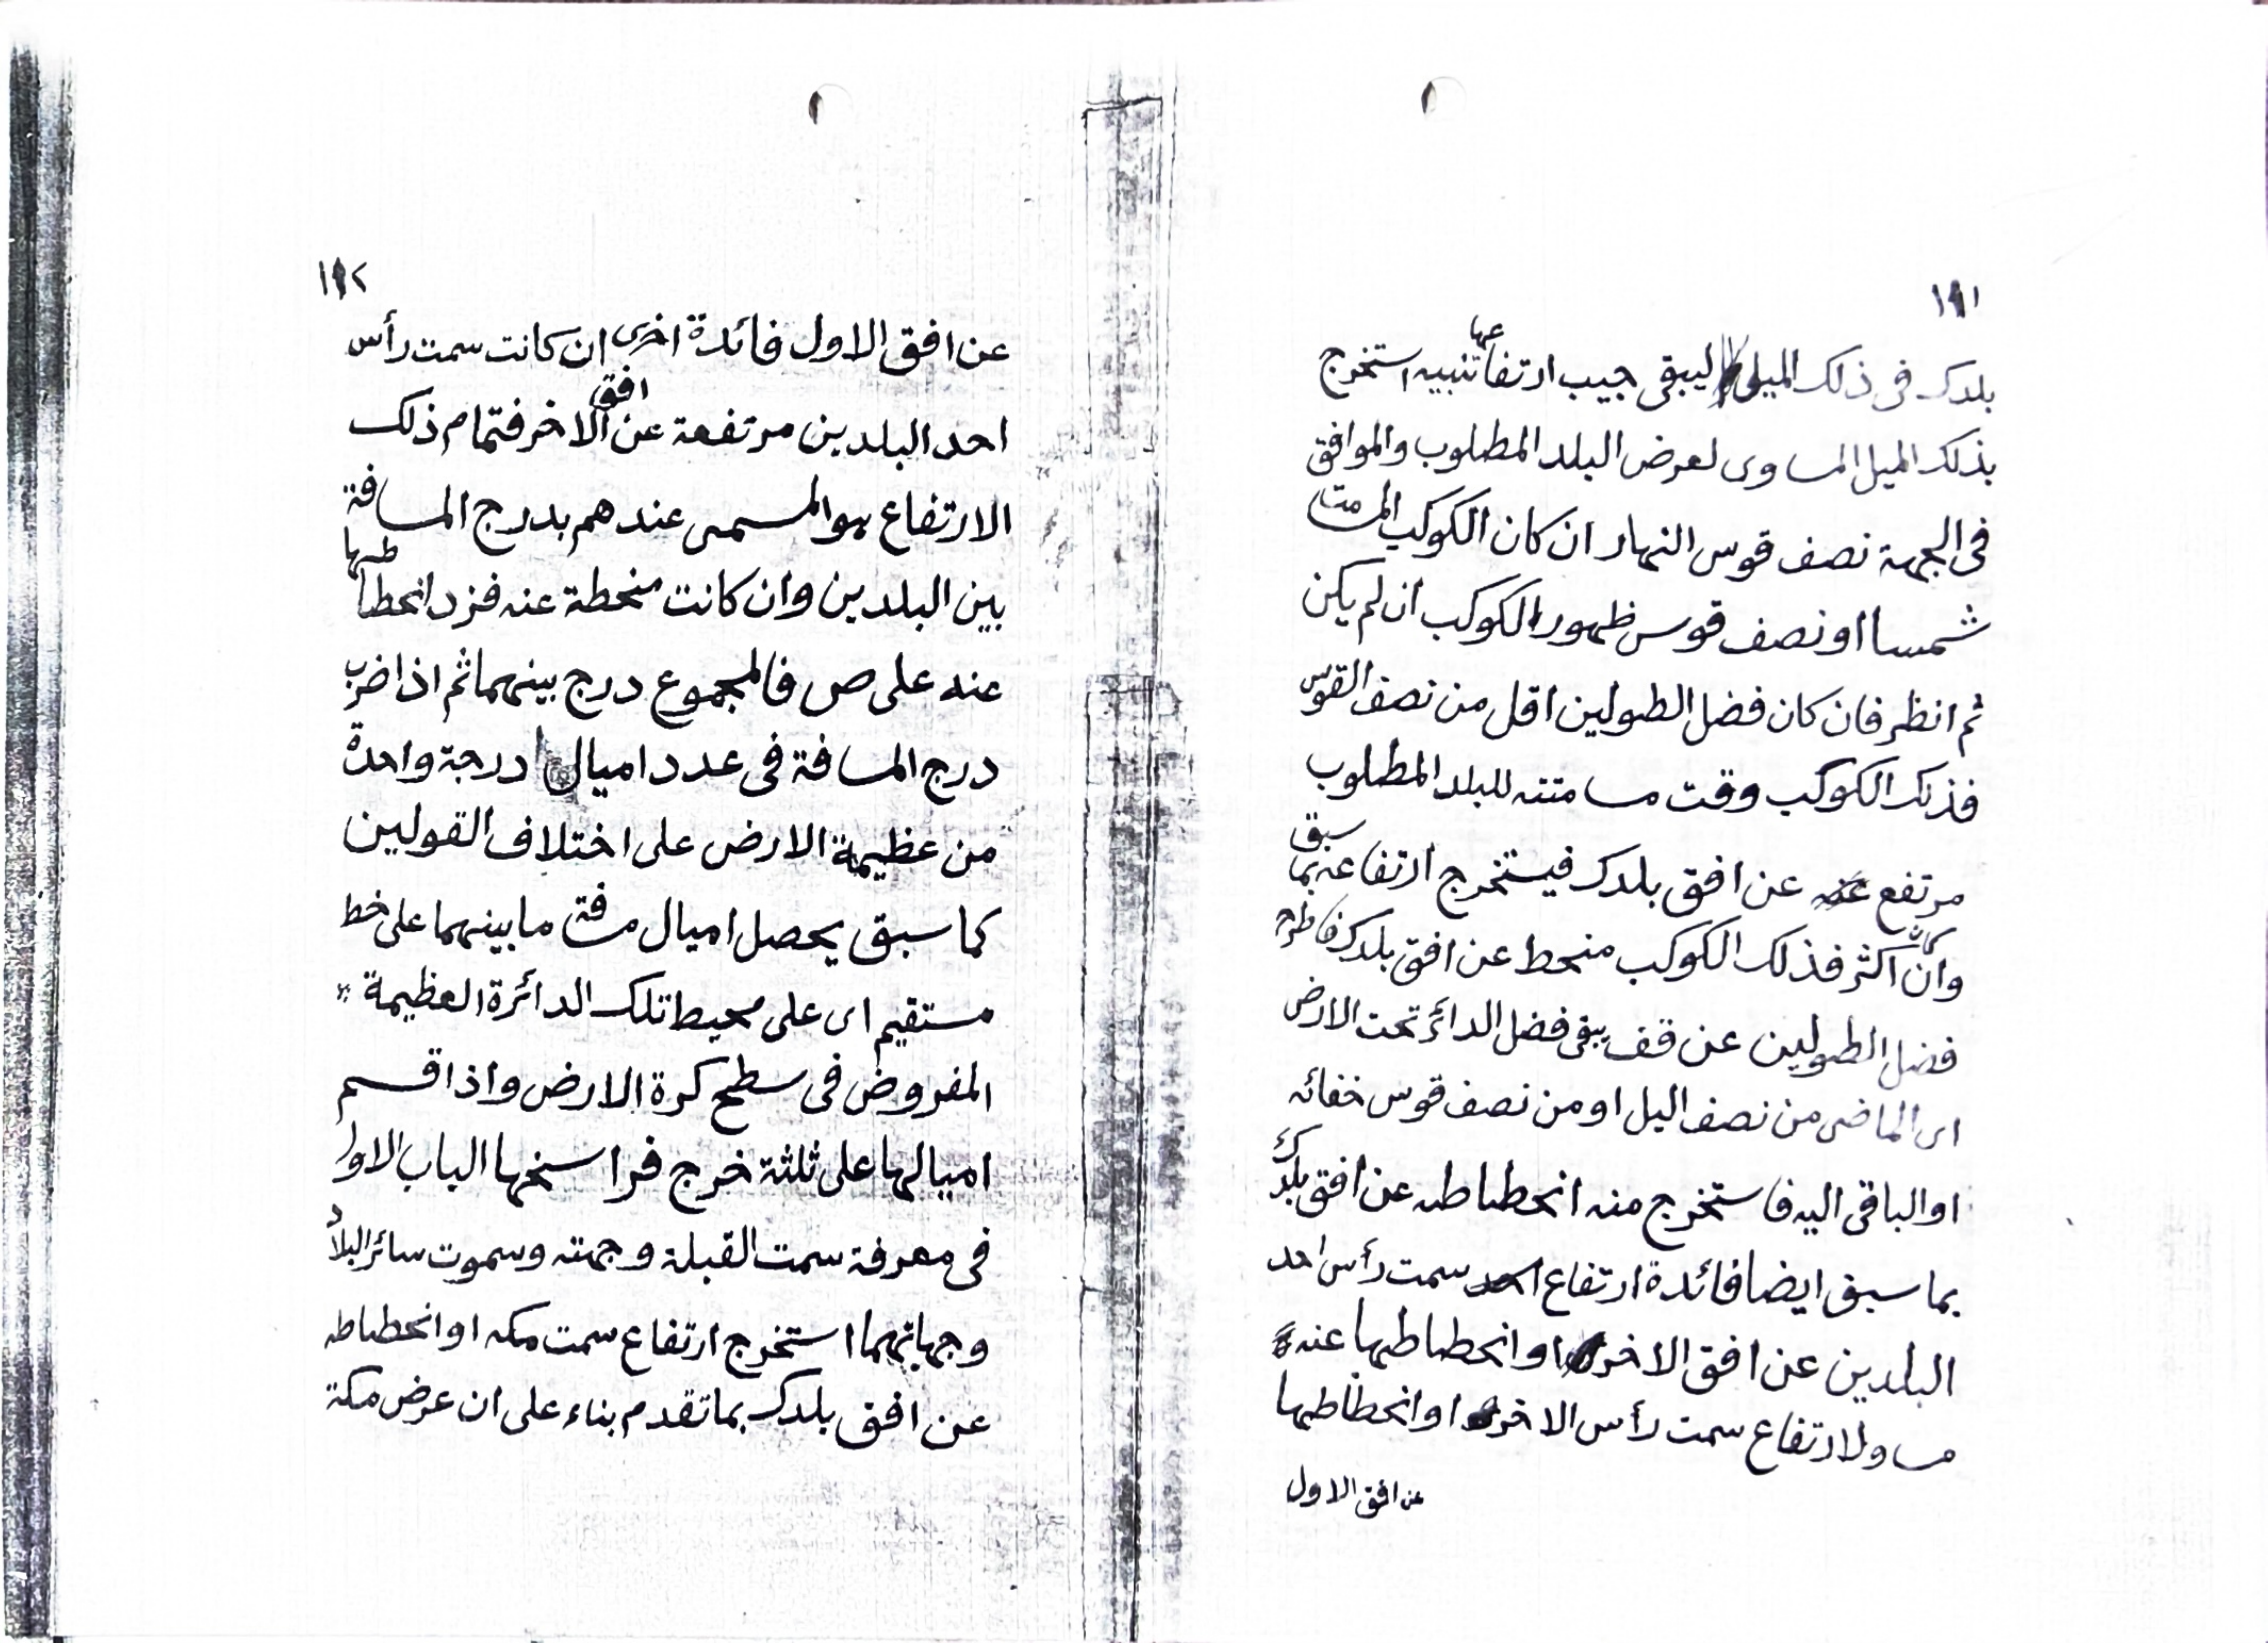 ١٩١
بلدك فى ذلك الميل ليبقى جيب ارتفاعها تنبيه استخرج
بذلك الميل المساوى لعرض البلد المطلوب والموافق
فى الجهة نصف قوس النهار ان كان الكوكب المسامت
شمسا او نصف قوس ظهور الكوكب ان لم يكن
ثم انظر فان كان فضل الطولين اقل من نصف القوس
فذلك الكوكب وقت مسامتته للبلد المطلوب
مرتفع عن افق بلدك فيستخرج ارتفاعه بما سبق
وان كان اكثر فذلك الكوكب منحط عن افق بلدك فاطرح
فضل الطولين عن قف يبقى فضل الدائر تحت الارض
اى الماضى من نصف اليل او من نصف قوس خفائه
او الباقى اليه فاستخرج منه انحطاطه عن افق بلدك
بما سبق ايضا فائدة ارتفاع سمت رأس احد
البلدين عن افق الاخر او انحطاطها عنه
مساو لارتفاع سمت رأس الاخر او انحطاطها
عن افق الاول
١٩٢
عن افق الاول فائدة اخرى ان كانت سمت رأس
احد البلدين مرتفعة عن افق الاخر فتمام ذلك
الارتفاع هو المسمى عندهم بدرج المسافة
بين البلدين وان كانت منحطة عنه فزد انحطاطها
عنه على ص فالمجموع درج بينهما ثم اذا ضرب
درج المسافة فى عدد اميال درجة واحدة
من عظيمة الارض على اختلاف القولين
كما سبق يحصل اميال مسافة ما بينهما على خط
مستقيم اى على محيط تلك الدائرة العظيمة
المفروض فى سطح كرة الارض واذا قسم
اميالها على ثلثة خرج فراسخها الباب الاول
فى معرفة سمت القبلة وجهته وسموت سائر البلاد
وجهاتهما استخرج ارتفاع سمت مكه او انحطاطه
عن افق بلدك بما تقدم بناء على ان عرض مكة